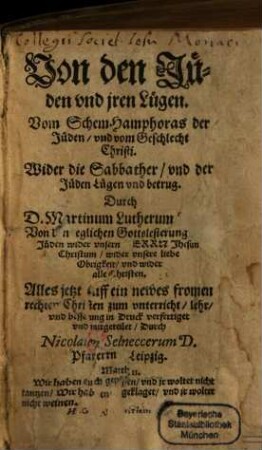 Collegii Societ. Iesu Monac
Von den Jü-
den vnd jren Lügen.
Vom Schem-Hamphoras der
Jüden / vnd vom Geschlecht
Christi.
Wider die Sabbather / vnd der
Jüden Lügen vnd betrug.
Durch
D. Martinum Lutherum
Von eglichen Gotteslesterung
Jüden wider vnsern HERRN Jhesum
Christum / wider vnsere liebe
Obrigkeit / vnd wider
alle Christen.
Alles jetzt auff ein newes fromen
rechten Christen zum vnterricht / lehr /
vnd besserung in Druck verfertiget
vnd mitgeteilet / Durch
Nicolaum Selneccerum D.
Pfarrern Leipzig.
Matth. 11.
Wir haben euch gepfiffen / vnd jr woltet nicht
tantzen / Wir haben geklaget / vnd jr woltet
nicht weinen.
Bayerische
Staatsbibliothek
München